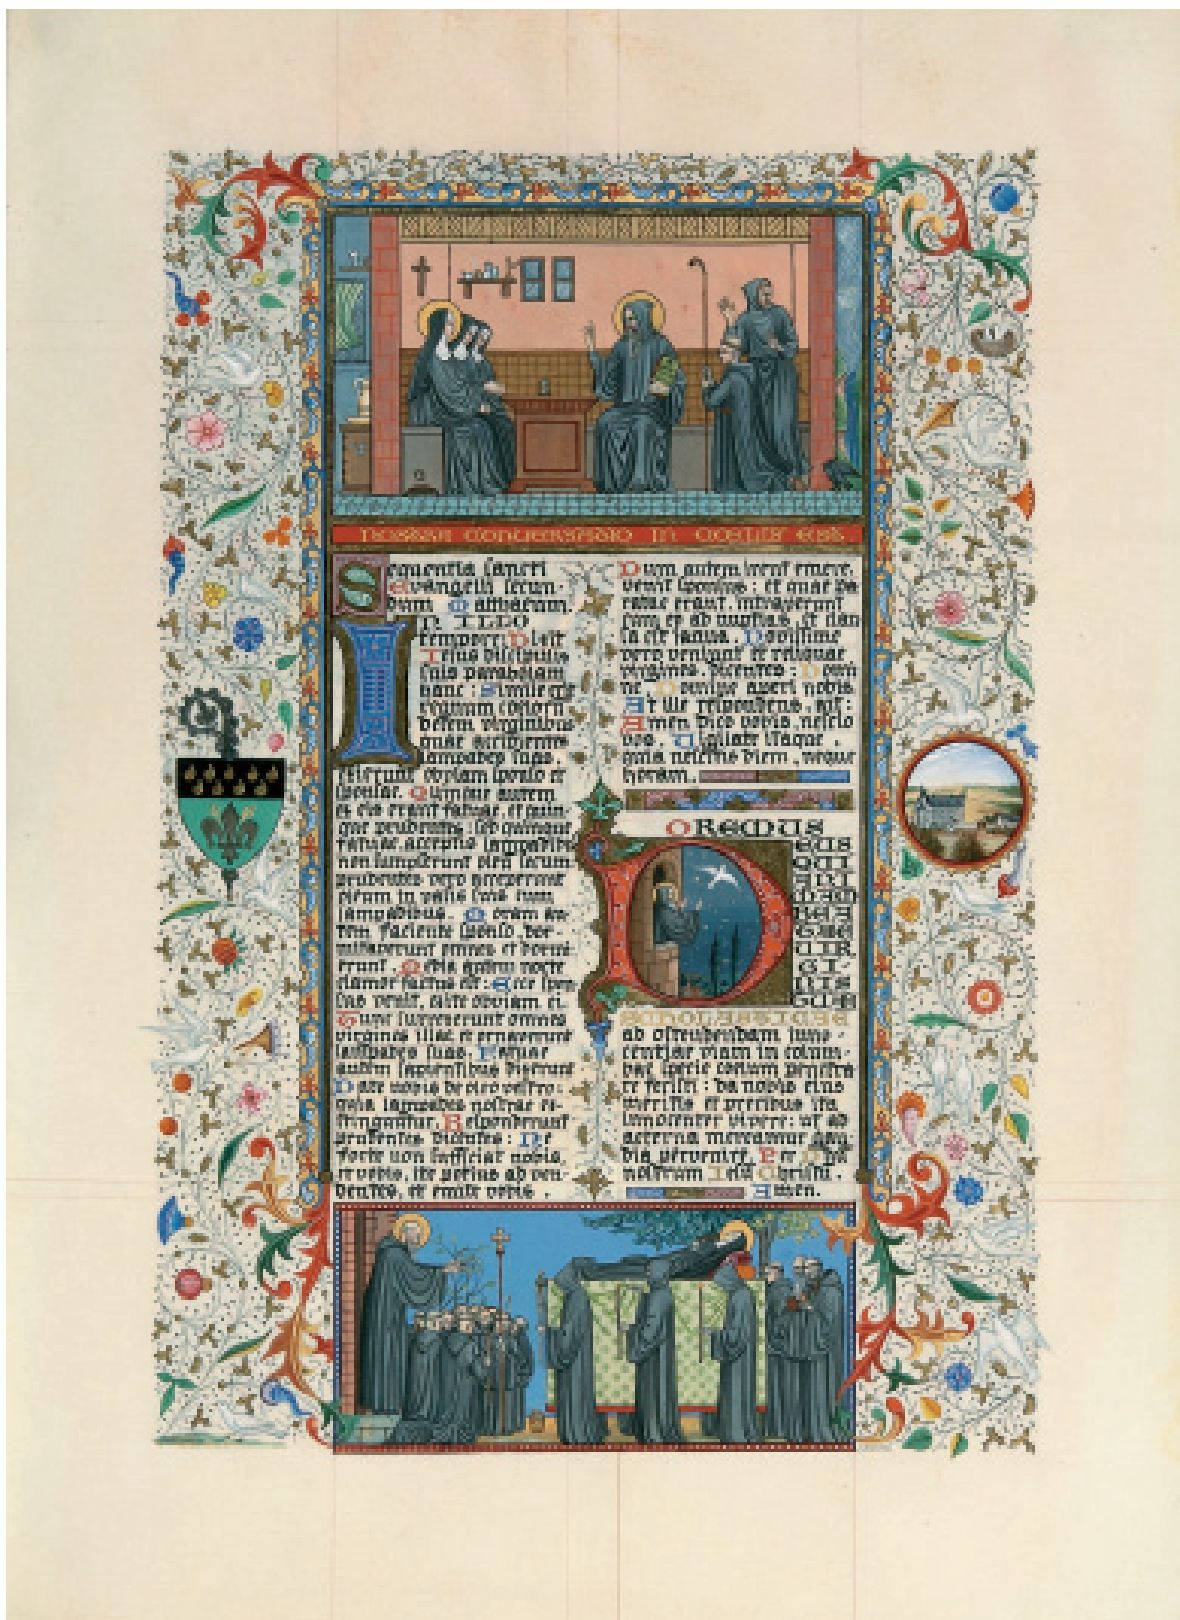 NOSTRA CONVERSATIO IN COELIS EST
Sequentia sancti
evangelii secun-
dum Matthaeum.
IN ILLO
tempore: Dixit
Iesus discipulis
suis parabolam
hanc: Simile est
regnum coelorum
decem virginibus
quae accipientes
lampades suas,
exierunt obviam sponso et
sponsae. Quinque autem
ex eis erant fatuae, et quin-
que prudentes: sed quinque
fatuae, acceptis lampadibus
non sumpserunt oleum secum
prudentes vero acceperunt
oleum in vasis suis cum
lampadibus. Moram au-
tem faciente sponso, dor-
mitaverunt omnes et dormi-
erunt. Media autem nocte
clamor factus est: Ecce spon-
sus venit, exite obviam ei.
Tunc surrexerunt omnes
virgines illae et ornaverunt
lampades suas. Fatuae
autem sapientibus dixerunt
Date nobis de oleo vestro:
quia lampades nostrae ex-
tinguntur. Responderunt
prudentes dicentes: Ne
forte non sufficiat nobis,
et vobis, ite potius ad ven-
dentes, et emite vobis.
Dum autem irent emere,
venit sponsus: et quae pa-
ratae erant, intraverunt
cum eo ad nuptias, et clau-
sa est ianua. Novissime
vero veniunt et reliquae
virgines, dicentes: Domi
ne, Domine aperi nobis
At ille respondens, ait:
Amen dico vobis, nescio
vos. Vigilate itaque,
quia nescitis diem, neque
horam.
OREMUS
DEUS
QUI
ANI
MAM
BEA
TAE
VIR
GI-
NIS
TUAE
SCHOLASTICAE
ad ostendendam inno-
centiae viam in colum-
bae specie coelum penetra
re fecisti: da nobis eius
meritis et precibus ita
innocenter vivere: ut ad
aeterna mereamur gau
dia pervenire. Per
nostrum Iesum Christum.
Amen.